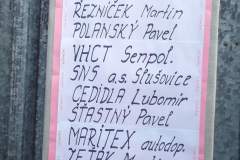 ŘEZNÍČEK Martin
POLANSKÝ Pavel
VHCT Senpol.
SNS a.s. Slušovice
CEDIDLA Lubomír
ŠŤASTNÝ Pavel
MARITEX autodop.